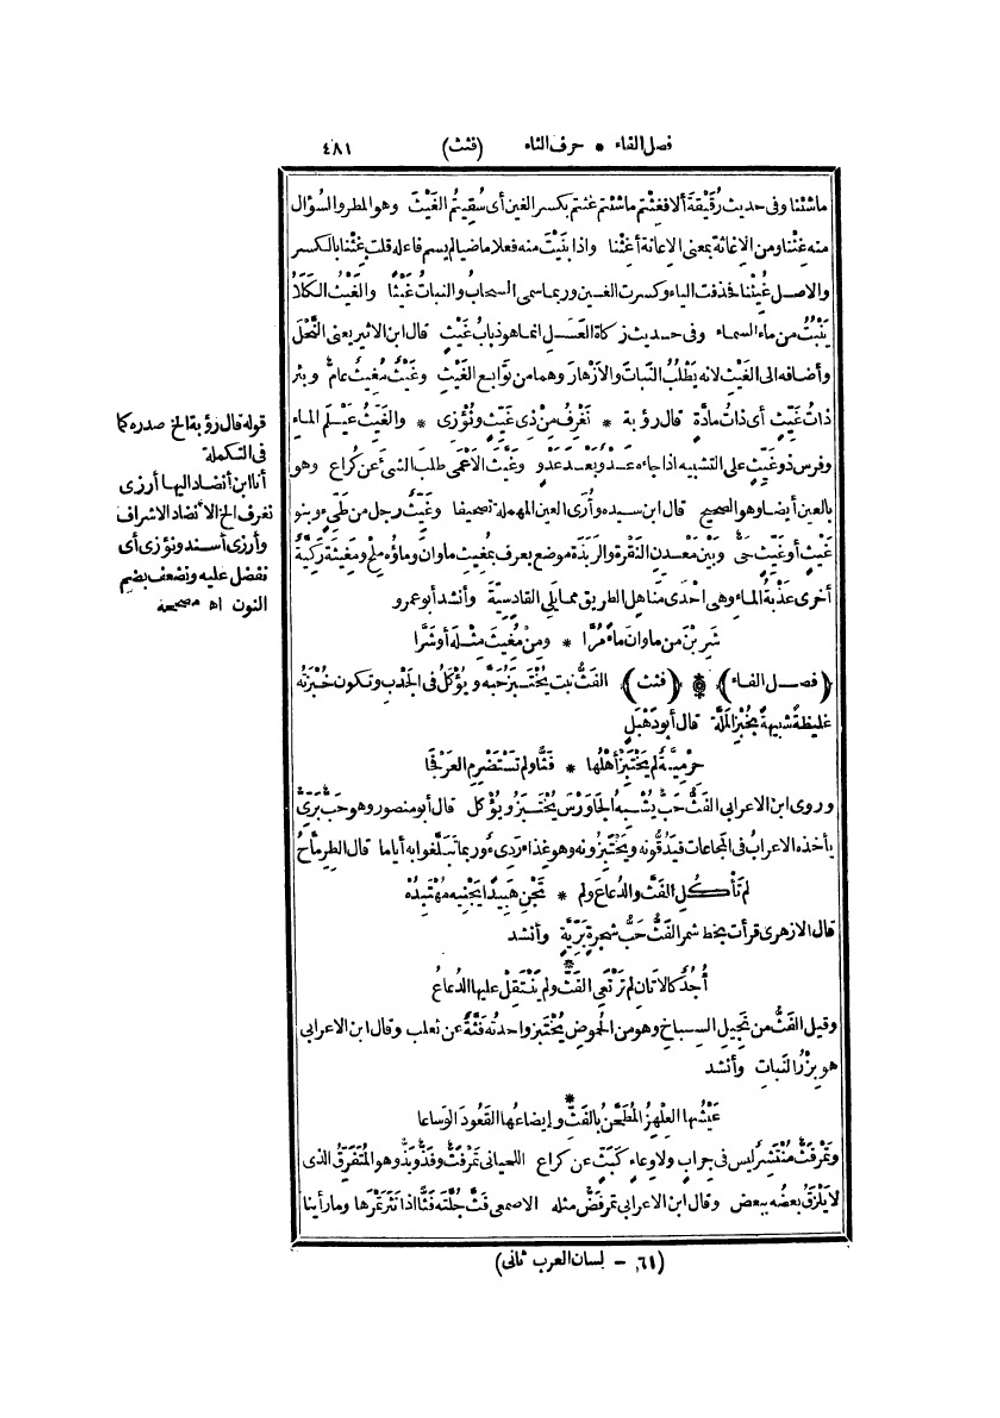 فصل الفاء * حرف الثاء (فثث) ٤٨١
ماشئنا وفى حديث رُقَيْقَةَ ألا فغِثْتُم ماشئتم غثتم بكسر الغين أى سُقِيتُم الغَيْثَ وهو المطر والسُؤال
منه غِثْنا ومن الاغاثة بمعنى الاعانة أغِثْنا واذا بَنَيْتَ منه فعلا ماضيا لم يسم فاعله قلت غِثْنا بالكسر
والاصل غُيِثْنا فحذفت الياء وكسرت الغين وربما سمى السحابُ والنباتُ غَيْثًا والغَيْثُ الكَلَأُ
يَنْبُتُ من ماء السماء وفى حديث زكاة العَسَل انما هو ذباب غَيْثٍ قال ابن الاثير يعنى النَّحْلَ
وأضافه الى الغَيْثِ لانه يَطْلُبُ النَّباتَ والاَزْهارَ وهما من تَوابِع الغَيْثِ وغَيْثٌ مُغِيثٌ عامٌّ وبئر
ذاتُ غَيِّثٍ أى ذاتُ مادَّةٍ قال رؤبة * نَغْرِفُ مِنْ ذِى غَيِّثٍ ونُؤْزى * والغَيِّثُ عَيْلَم الماء
وفرس ذو غَيِّثٍ على التشبيه اذا جاءه عَدْوٌ بَعْدَ عَدْوٍ وغَيَّثَ الاَعْمَى طلبَ الشىءَ عن كُراع وهو
بالعين أيضا وهو الصحيح قال ابن سيده وأُرَى العين المهملة تصحيفا وغَيِّثُ رجل من طَيِّئٍ وبنو
غَيْثٍ أو غَيِّثٍ حَىٌّ وبَيْنَ مَعْدِنِ النَّقْرة والرَبَذَة موضع يعرف بمُغِيثِ ماوانَ وماؤه مِلْح ومَغِيثَة رَكِيَّةٌ
أخرى عَذْبَةُ الماء وهى احْدَى مَناهِل الطريق مما يَلى القادسِيَّة وأنشد أبو عمرو
شَرِبْنَ مِن ماوانَ ماءً مُرَّا * ومِنْ مُغِيثَ مِثْلَه أو شَرَّا
(فصل الفاء) (فثث) الفَثُّ نبت يُخْتَبَزُ حَبُّه ويُؤْكَلُ فى الجَدْب وتكون خُبْزَتُه
غليظةً شبيهةً بخُبْز المَلَّة قال أبو دَهْبَلٍ
حِرْمِيَّةٌ لم يَخْتَبِزْ أهْلُها * فَثًّا ولم تَسْتَضْرِمِ العَرْفَجَا
وروى ابن الاعرابى الفَثُّ حَبٌّ يُشْبِه الجَاوَرْسَ يُخْتَبَزُ ويُؤْكل قال أبو منصور وهو حَبٌّ بَرِّىٌّ
يأخذه الاعرابُ فى المَجاعات فيَدُقُّونه ويَخْتَبِزُونه وهو غِذاء رَدِىءٌ وربما تَبَلَّغوا به أياما قال الطِرِمَّاحُ
لم تَأْكُلِ الفَثَّ والدُعاعَ ولم * تَجْنِ هَبِيدًا يَجْنِيه مُهْتَبِدُهْ
قال الازهرى قرأت بخط شمر الفَثُّ حَبُّ شجرةٍ بَرِّيَّةٍ وأنشد
أُجُدٌ كالاَتانِ لم تَرْتَعِ الفَثَّ * ولم يَنْتَقِلْ عليها الدُعاعُ
وقيل الفَثُّ من نَجِيلِ السِباخِ وهو من الحُموضِ يُخْتَبَزُ واحدتُه فَثَّةٌ عن ثعلب وقال ابن الاعرابى
هو بِزْرُ النَّباتِ وأنشد
عَيْشُها العِلْهِزُ المُطَحَّنُ بالفَثِّ * وإيضاعُها القَعُودَ الوَساعا
وتَمْرفَثٌّ مُنْتَشِرٌ ليس فى جِرابٍ ولا وِعاءٍ كَبَثٍّ عن كراع اللحيانى تَمْرٌ فَثٌّ وفَذٌّ وبَذٌّ وهو المُتَفَرِّقُ الذى
لا يَلْزَقُ بعضُه ببعض وقال ابن الاعرابى تمر فَضٌّ مثله الاصمعى فَثَّ جُلَّتَه فَثًّا اذا نَثَرَ تَمْرَها وما رأينا
قوله قال رؤبة الخ صدره كما
فى التكملة
أنا ابن أنضاد اليها أرزى
نغرف الخ الانضاد الاشراف
وأرزى أسند ونؤزى أى
نفضل عليه ونضعف بضم
النون اه مصححه
(٦١ - لسان العرب ثانى)